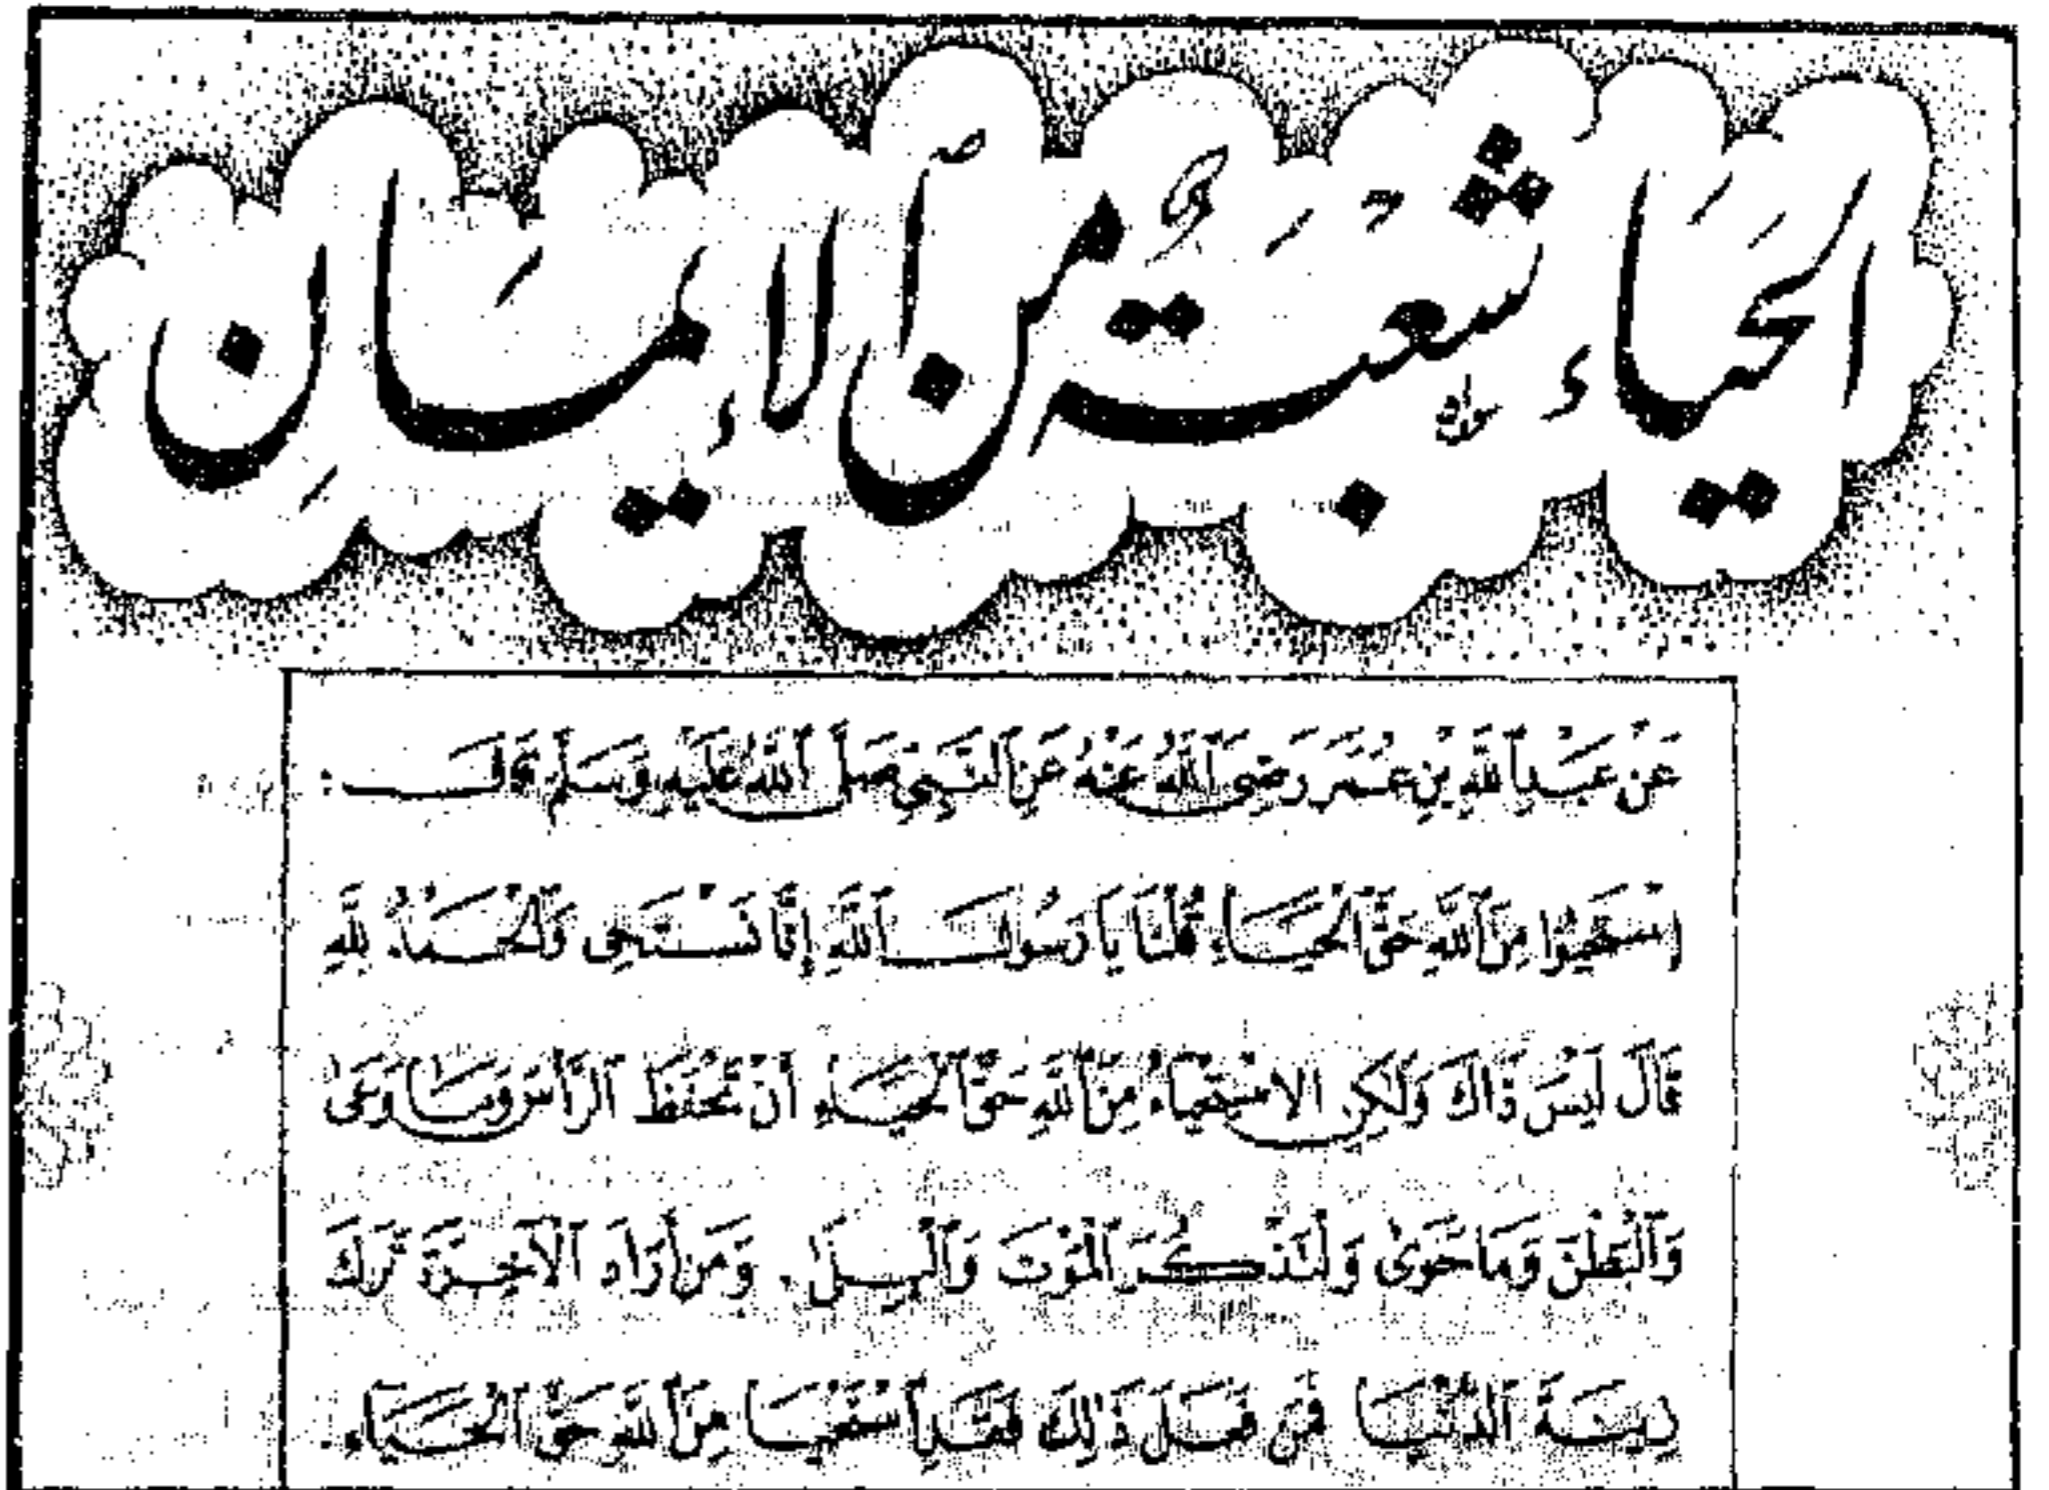 الحَيَاءُ شُعْبَةٌ مِنَ الإِيمَانِ
عَنْ عَبْدِ اللَّهِ بْنِ عُمَرَ رَضِيَ اللَّهُ عَنْهُ عَنِ النَّبِيِّ صَلَّى اللَّهُ عَلَيْهِ وَسَلَّمَ قَالَ :
اِسْتَحْيُوا مِنَ اللَّهِ حَقَّ الْحَيَاءِ، قُلْنَا يَا رَسُولَ اللَّهِ إِنَّا نَسْتَحْيِى وَالْحَمْدُ لِلَّهِ
قَالَ لَيْسَ ذَاكَ وَلَكِنِ الاسْتِحْيَاءُ مِنَ اللَّهِ حَقَّ الْحَيَاءِ أَنْ تَحْفَظَ الرَّأْسَ وَمَا وَعَى
وَالْبَطْنَ وَمَا حَوَى وَلْتَذْكُرِ الْمَوْتَ وَالْبِلَى. وَمَنْ أَرَادَ الْآخِرَةَ تَرَكَ
زِينَةَ الدُّنْيَا فَمَنْ فَعَلَ ذَلِكَ فَقَدِ اسْتَحْيَا مِنَ اللَّهِ حَقَّ الْحَيَاءِ.